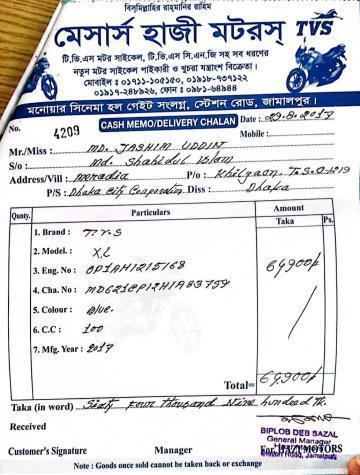 বিসমিল্লাহির রাহমানির রাহিম
মেসার্স হাজী মটরস্
TVS
টি.ভি.এস মটর সাইকেল, টি.ভি.এস সি.এন.জি সহ সব ধরণের
নতুন মটর সাইকেল পাইকারী ও খুচরা যন্ত্রাংশ বিক্রেতা।
মোবাইল : ০১৭১১-১০৫১৫০, ০১৯১৮-৭০৭১২২
০১৯১৭-২৪৮৯২৬, ফোন : ০৯৮১-৬৪৯৪৪
মনোয়ার সিনেমা হল গেইট সংলগ্ন, স্টেশন রোড, জামালপুর।
No. 4209 CASH MEMO/DELIVERY CHALAN Date : 29.8.2017
Mobile :
Mr./Miss : MD. JASHIM UDDIN
S/o : Md. Shahidul Islam
Address/Vill : Meradia P/o : Khilgaon T.S.O-1219
P/S : Dhaka City Corporation Diss : Dhaka
Qunty. Particulars Amount
Taka Ps.
1. Brand : T.V.S
2. Model. : XL
3. Eng. No : OP1AH1215168 64,900/-
4. Cha. No : MD621CP12H1A83759
5. Colour : Blue.
6. C.C : 100
7. Mfg. Year : 2017
Total= 64,900/-
Taka (in word) Sixty Four Thousand Nine hundred Tk.
Received
BIPLOB DEB SAZAL
General Manager
Customer's Signature Manager For HAZI MOTORS
Station Road, Jamalpur
Note : Goods once sold cannot be taken back or exchange